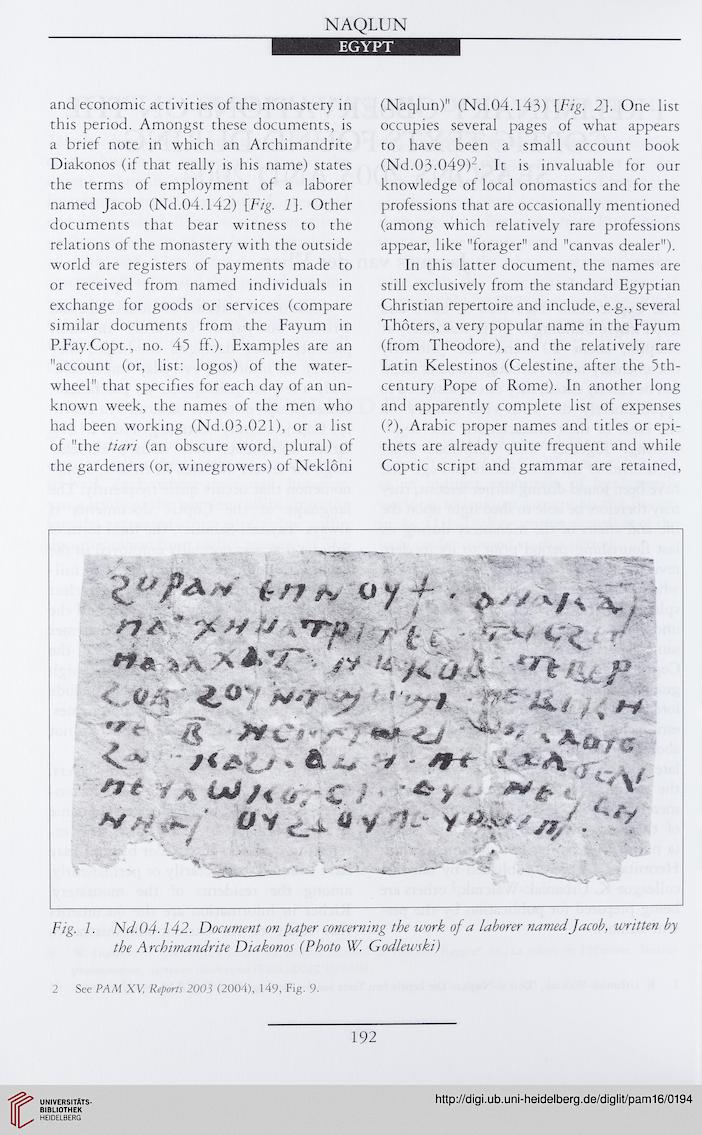 NAQLUN
EGYPT
and economic activities of the monastery in
this period. Amongst these documents, is
a brief note in which an Archimandrite
Diakonos (if that really is his name) states
the terms of employment of a laborer
named Jacob (Nd.04.142) [Fig. 1]. Other
documents that bear witness to the
relations of the monastery with the outside
world are registers of payments made to
or received from named individuals in
exchange for goods or services (compare
similar documents from the Fayum in
P.Fay.Copt., no. 45 ff.). Examples are an
"account (or, list: logos) of the water-
wheel" that specifies for each day of an un-
known week, the names of the men who
had been working (Nd.03.021), or a list
of "the tiari (an obscure word, plural) of
the gardeners (or, winegrowers) of Neklôni
(Naqlun)" (Nd.04.143) [Fig. 2]. One list
occupies several pages of what appears
to have been a small account book
(Nd.03.049)². It is invaluable for our
knowledge of local onomastics and for the
professions that are occasionally mentioned
(among which relatively rare professions
appear, like "forager" and "canvas dealer").
In this latter document, the names are
still exclusively from the standard Egyptian
Christian repertoire and include, e.g., several
Thôters, a very popular name in the Fayum
(from Theodore), and the relatively rare
Latin Kelestinos (Celestine, after the 5th-
century Pope of Rome). In another long
and apparently complete list of expenses
(?), Arabic proper names and titles or epi-
thets are already quite frequent and while
Coptic script and grammar are retained,
ϩⲩⲣⲁⲛ ⲉⲙⲛⲟⲩϯ
Fig. 1. Nd.04.142. Document on paper concerning the work of a laborer named Jacob, written by
the Archimandrite Diakonos (Photo W. Godlewski)
2 See PAM XV, Reports 2003 (2004), 149, Fig. 9.
192
UNIVERSITÄTS-
BIBLIOTHEK
HEIDELBERG
http://digi.ub.uni-heidelberg.de/diglit/pam16/0194